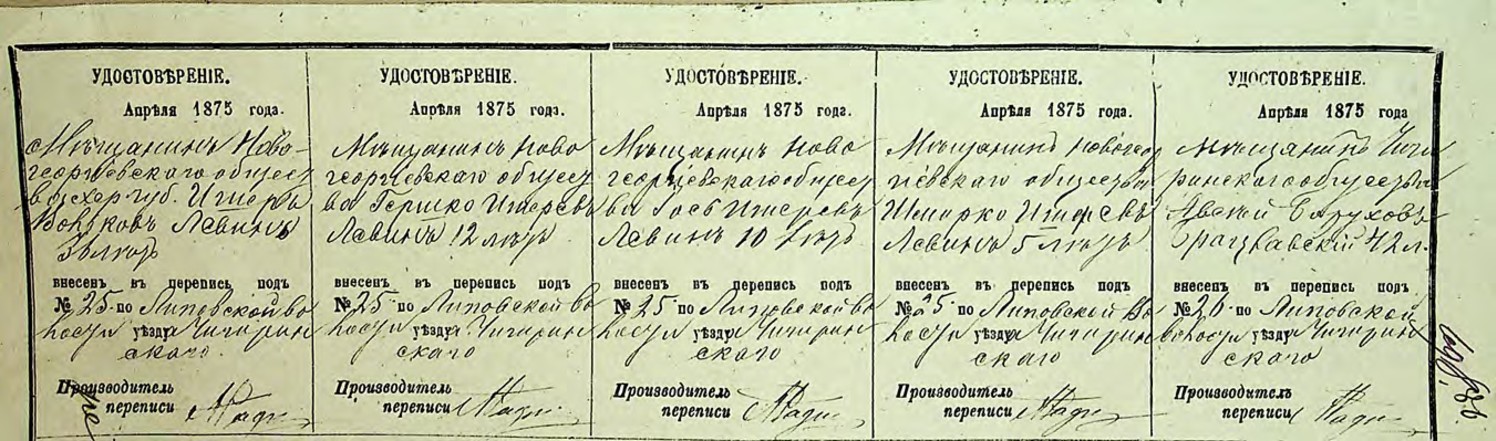 УДОСТОВѢРЕНІЕ.
Апрѣля 1875 года.
Мѣщанинъ Ново-
георгіевскаго общест
ва херс. губ. Итеръ
Левинъ
лѣтъ
внесенъ въ перепись подъ
№ 25 по Липовской во
лости уѣзда Чигирин
скаго.
Производитель
переписи
УДОСТОВѢРЕНІЕ.
Апрѣля 1875 года.
Мѣщанинъ Ново
георгіевскаго общест
ва Гершко Итеревъ
Левинъ 12 лѣтъ
внесенъ въ перепись подъ
№ 25 по Липовской во
лости уѣзда Чигирин
скаго
Производитель
переписи
УДОСТОВѢРЕНІЕ.
Апрѣля 1875 года.
Мѣщанинъ Ново
георгіевскаго общест
ва Іось Итеревъ
Левинъ 10 лѣтъ
внесенъ въ перепись подъ
№ 25 по Липовской во
лости уѣзда Чигирин
скаго
Производитель
переписи
УДОСТОВѢРЕНІЕ.
Апрѣля 1875 года.
Мѣщанинъ Новогеор
гіевскаго общества
Шмерко Итеревъ
Левинъ 5 лѣтъ
внесенъ въ перепись подъ
№ 25 по Липовской во
лости уѣзда Чигирин
скаго
Производитель
переписи
УДОСТОВѢРЕНІЕ.
Апрѣля 1875 года
Мѣщанинъ Чиги
ринскаго общества
Боруховъ
42 л.
внесенъ въ перепись подъ
№ 26 по Липовской
волости уѣзда Чигирин
скаго
Производитель
переписи